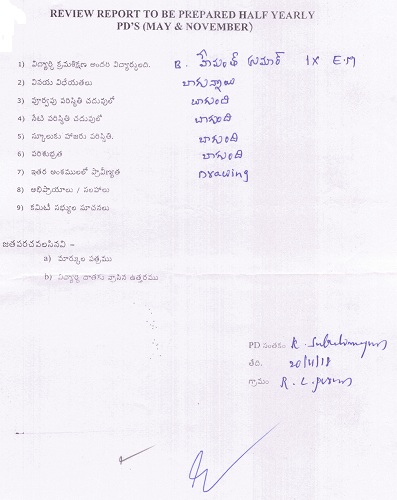 REVIEW REPORT TO BE PREPARED HALF YEARLY
PD'S (MAY & NOVEMBER)
1) విద్యార్థి క్రమశిక్షణ అందరి విద్యార్థులది. B. హేమంత్ కుమార్ IX E.M
2) వినయ విధేయతలు బాగున్నాయి
3) పూర్వపు పరిస్థితి చదువులో బాగుంది
4) నేటి పరిస్థితి చదువులో బాగుంది
5) స్కూలుకు హాజరు పరిస్థితి. బాగుంది
6) పరిశుభ్రత బాగుంది
7) ఇతర అంశములలో ప్రావీణ్యత Drawing
8) అభిప్రాయాలు / సలహాలు
9) కమిటీ సభ్యుల సూచనలు
జతపరచవలసినవి -
a) మార్కుల పత్రము
b) విద్యార్థి దాతకు వ్రాసిన ఉత్తరము
PD సంతకం R.
తేది. 20/11/18
గ్రామం R. L. puram